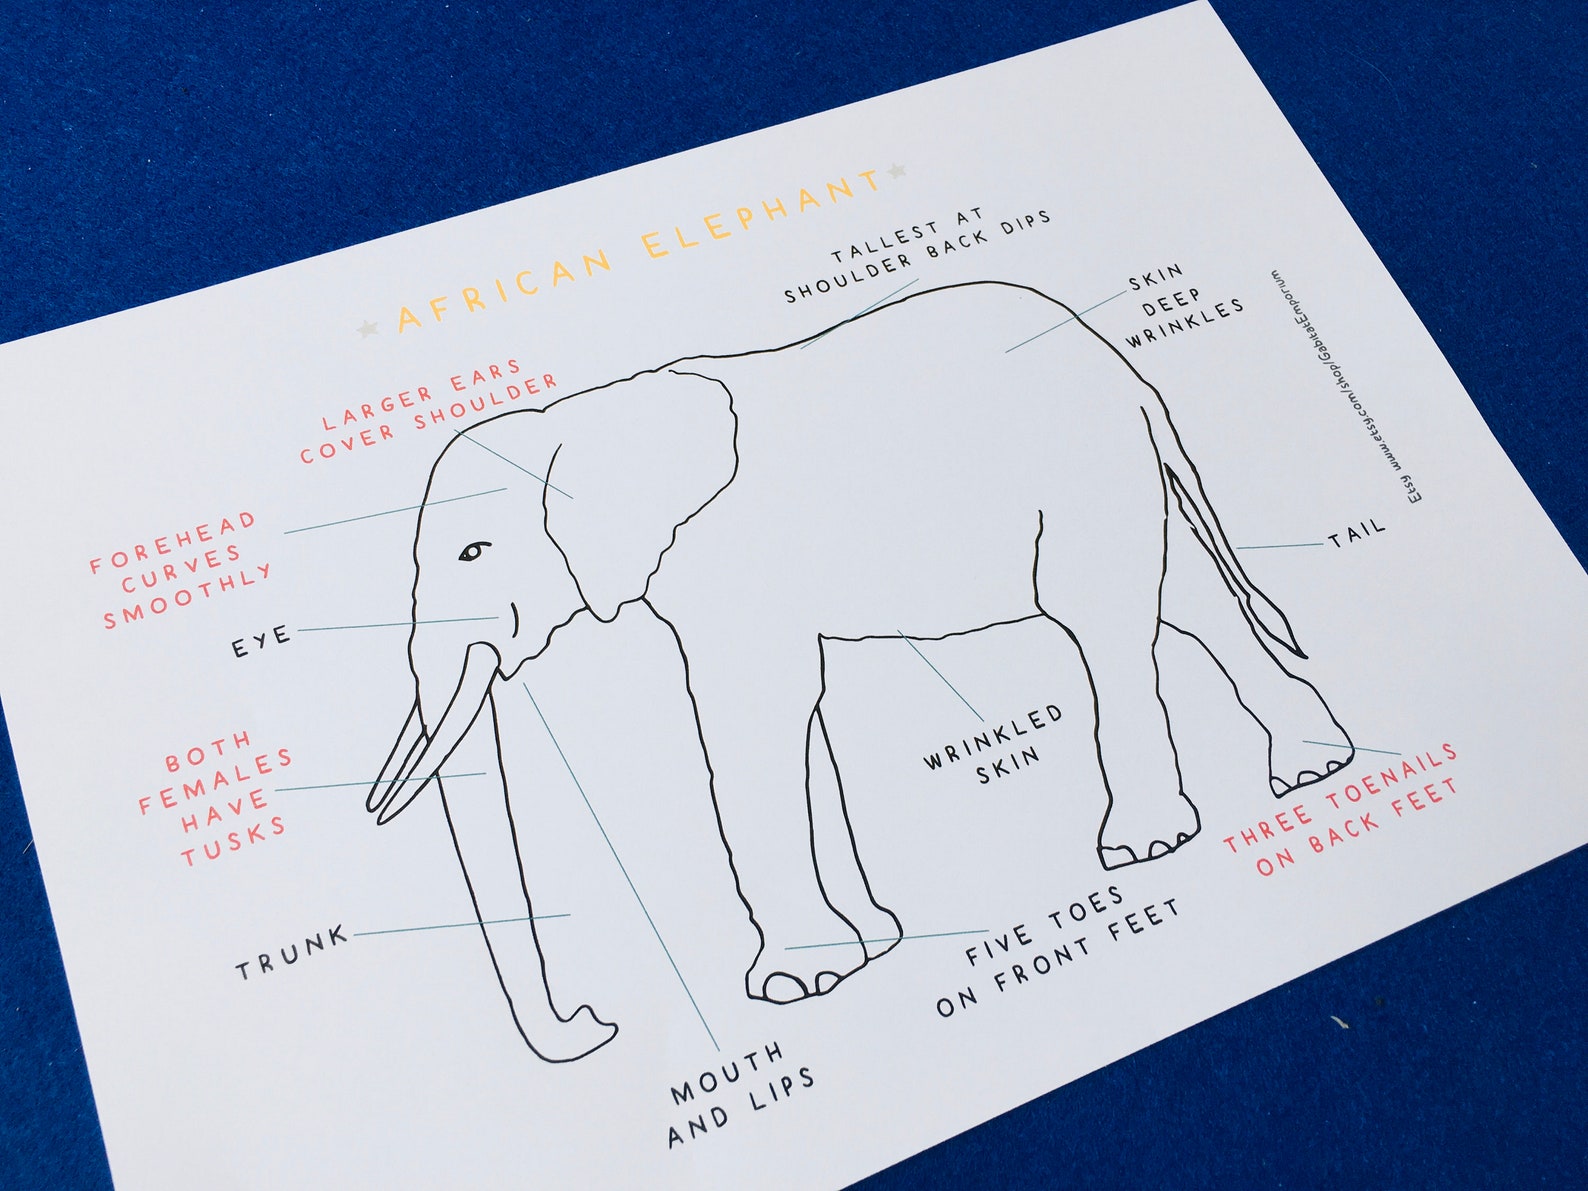 AFRICAN ELEPHANT
TALLEST AT
SHOULDER BACK DIPS
SKIN
DEEP
WRINKLES
LARGER EARS
COVER SHOULDER
FOREHEAD
CURVES
SMOOTHLY
EYE
TAIL
BOTH
FEMALES
HAVE
TUSKS
WRINKLED
SKIN
THREE TOENAILS
ON BACK FEET
TRUNK
FIVE TOES
ON FRONT FEET
MOUTH
AND LIPS
Etsy www.etsy.com/shop/GabitatEmporium